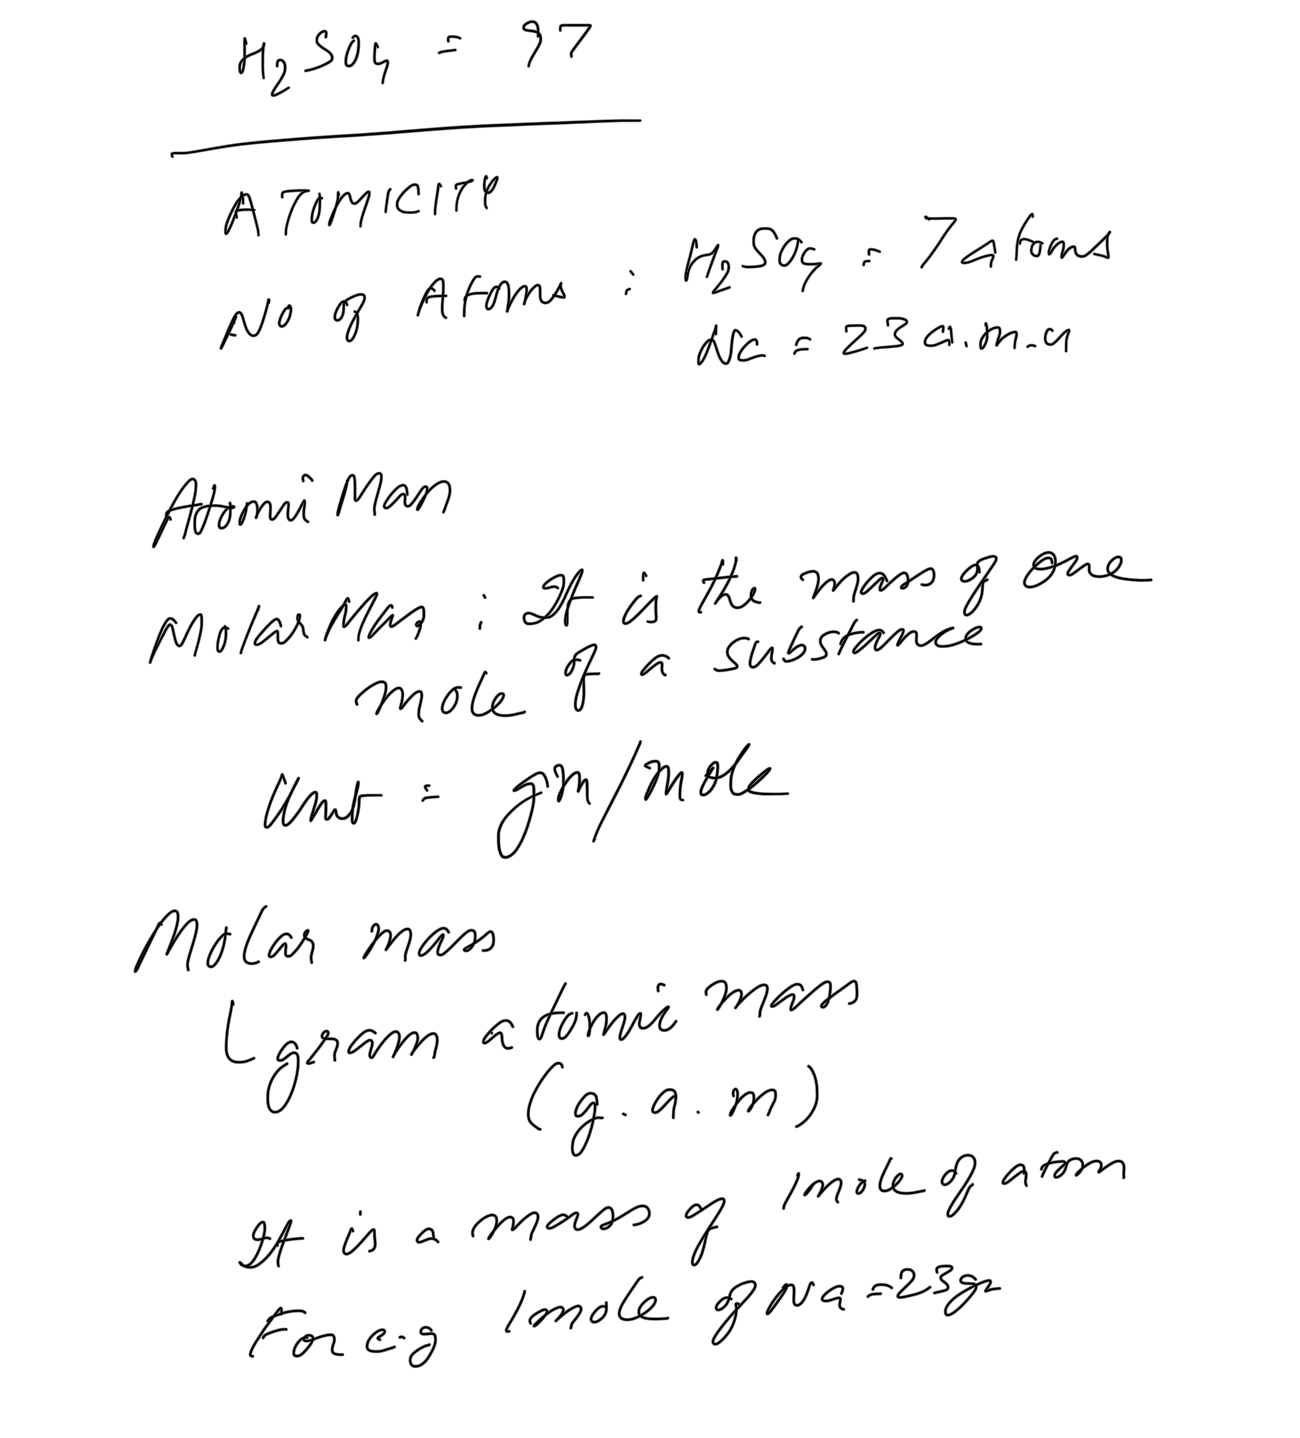 H₂SO₄ = 97
ATOMICITY
No of Atoms : H₂SO₄ = 7 atoms
Na = 23 a.m.u
Atomic Mass
Molar Mass : It is the mass of one
mole of a substance
Unit = gm/mole
Molar mass
gram atomic mass
(g.a.m)
It is a mass of 1mole of atom
For e.g 1mole of Na = 23gm